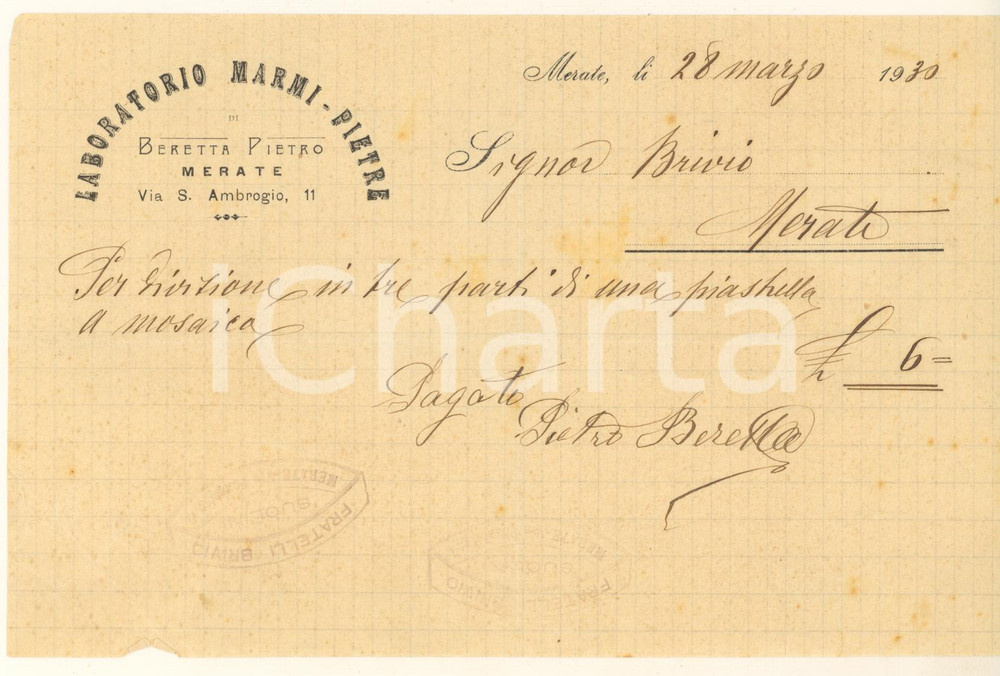 LABORATORIO MARMI-PIETRE
DI
BERETTA PIETRO
MERATE
Via S. Ambrogio, 11
Merate, li 28 marzo 1930
Signor Brivio
Merate
Per divisione in tre parti di una piastrella
a mosaico
£ 6=
Pagato
Pietro Beretta
iCharta
FRATELLI BRIVIO
FRATELLI